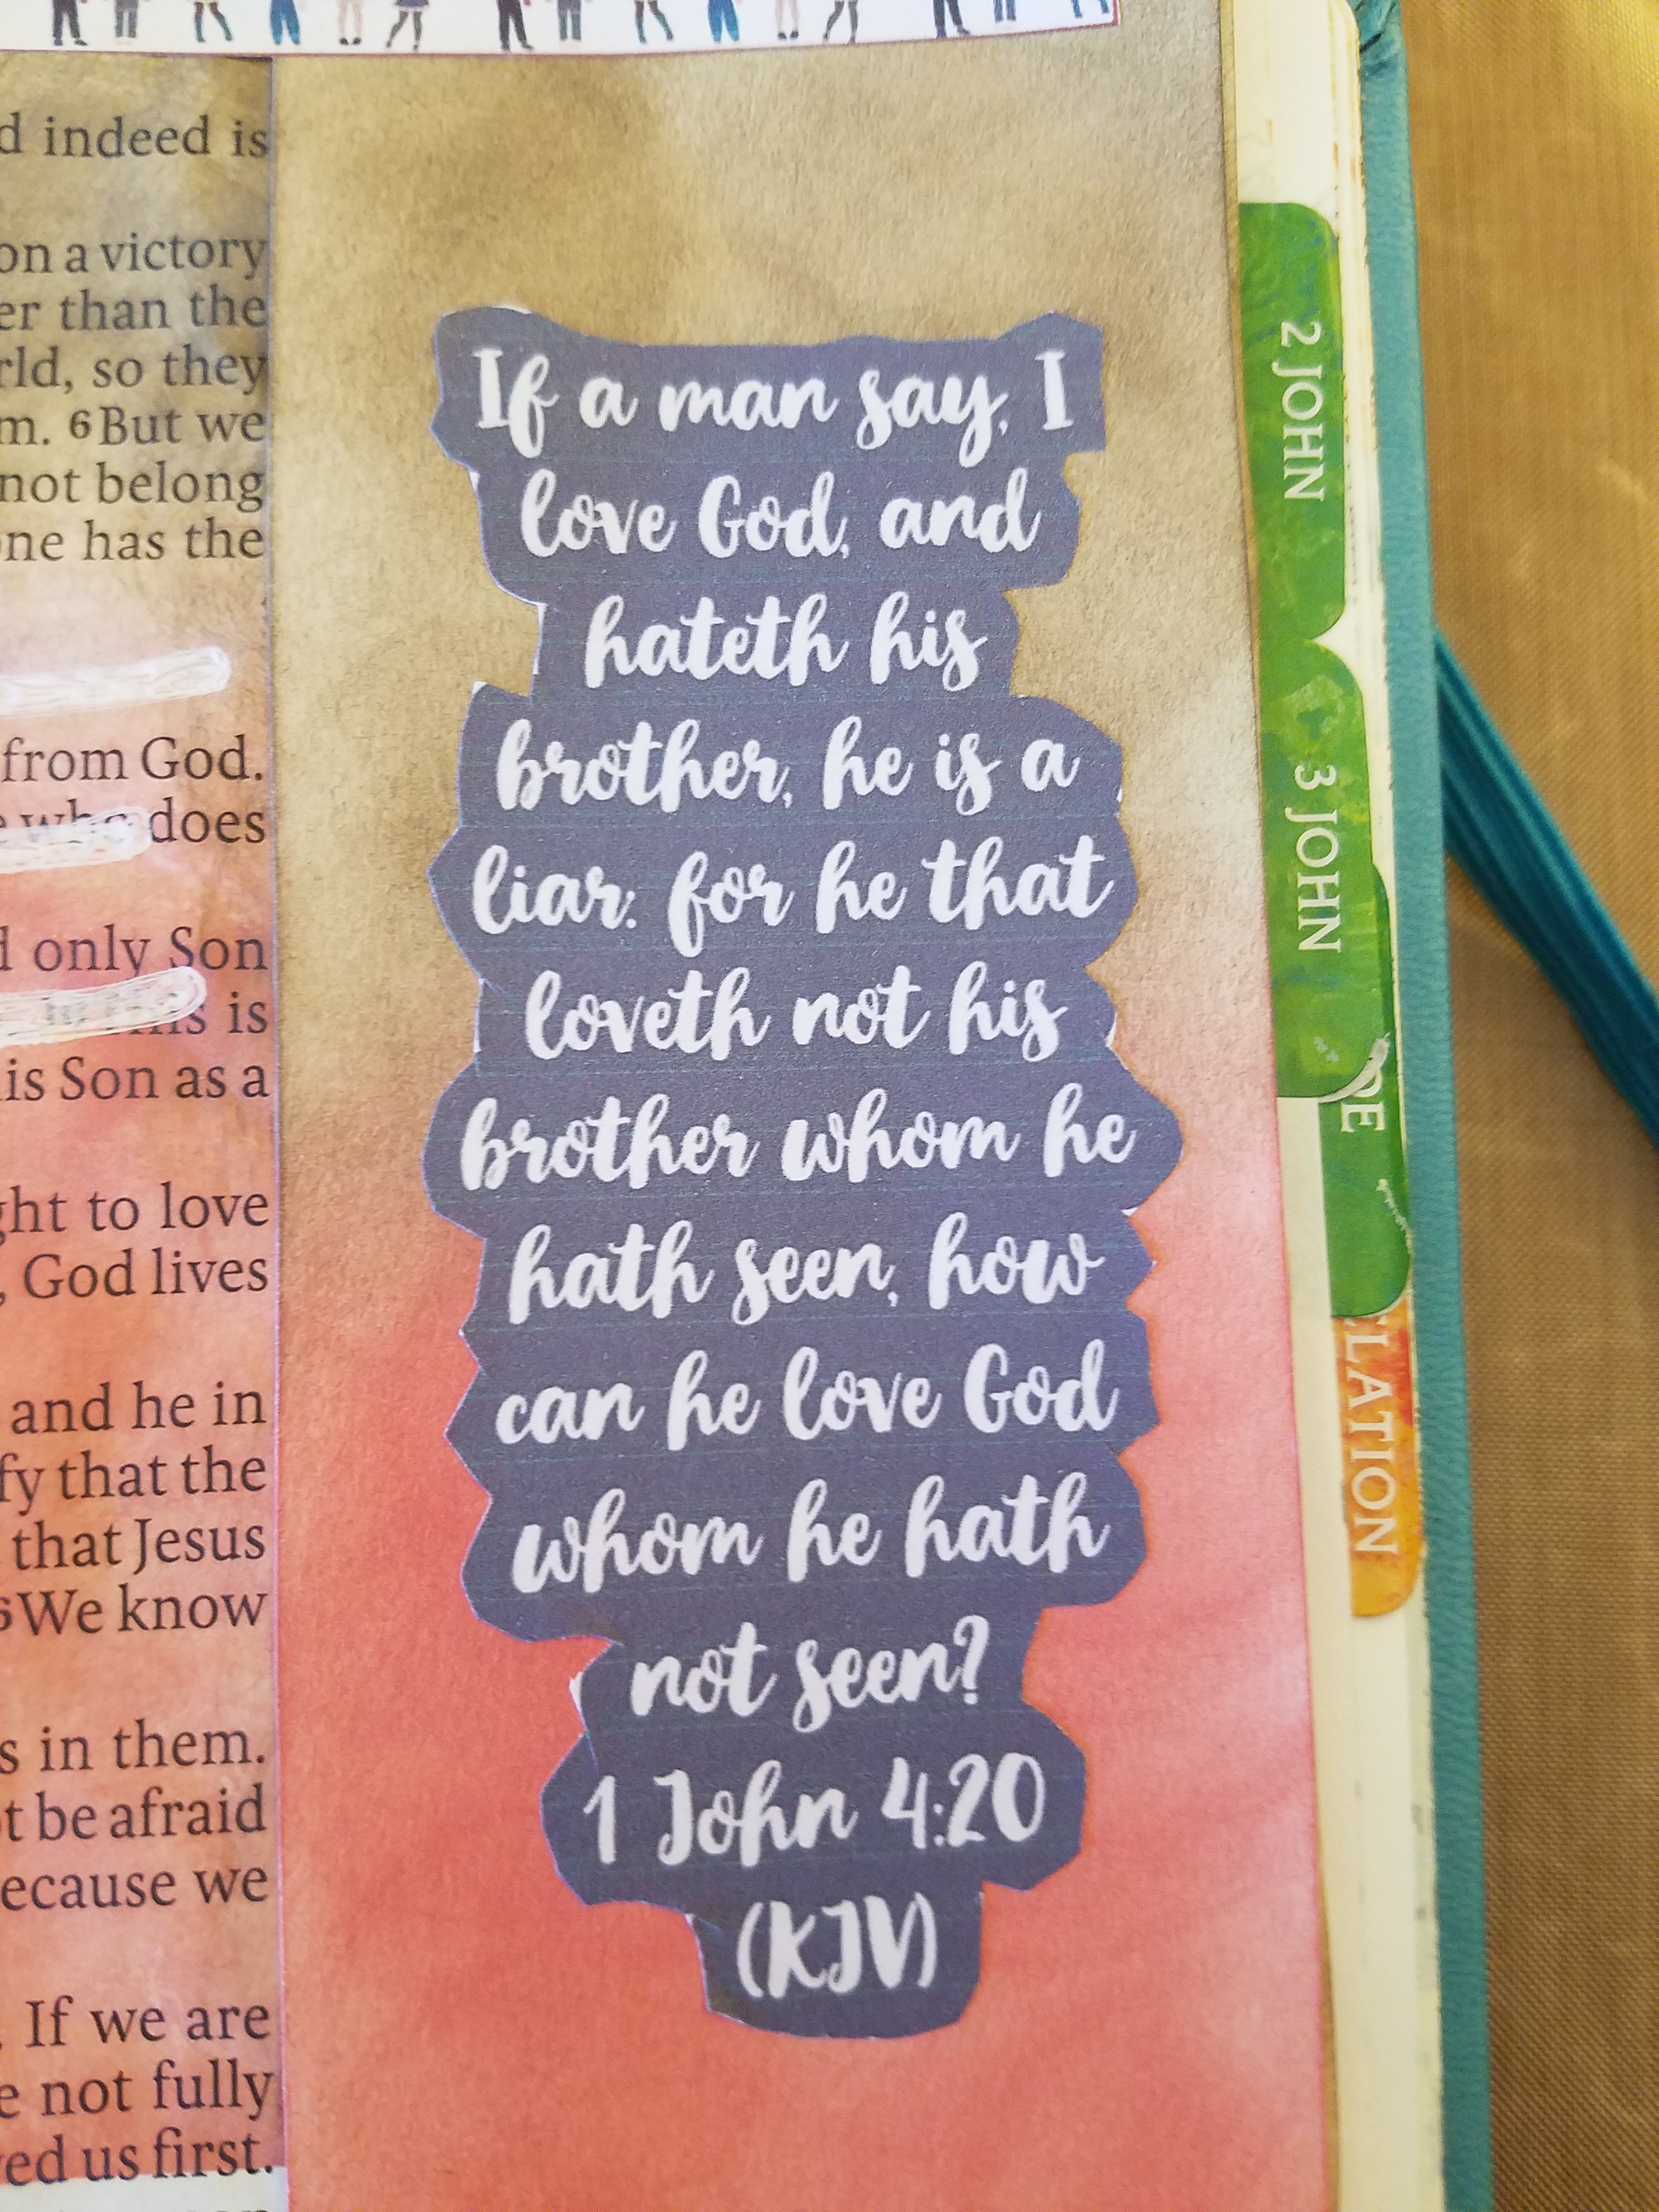 indeed is
on a victory
than the
so they
6 But we
not belong
has the
from God.
does
only Son
is
Son as a
to love
God lives
and he in
that the
that Jesus
We know
in them.
be afraid
we
If we are
not fully
us first.
If a man say, I
love God, and
hateth his
brother, he is a
liar: for he that
loveth not his
brother whom he
hath seen, how
can he love God
whom he hath
not seen?
1 John 4:20
(KJV)
2 JOHN
3 JOHN
DE
LATION